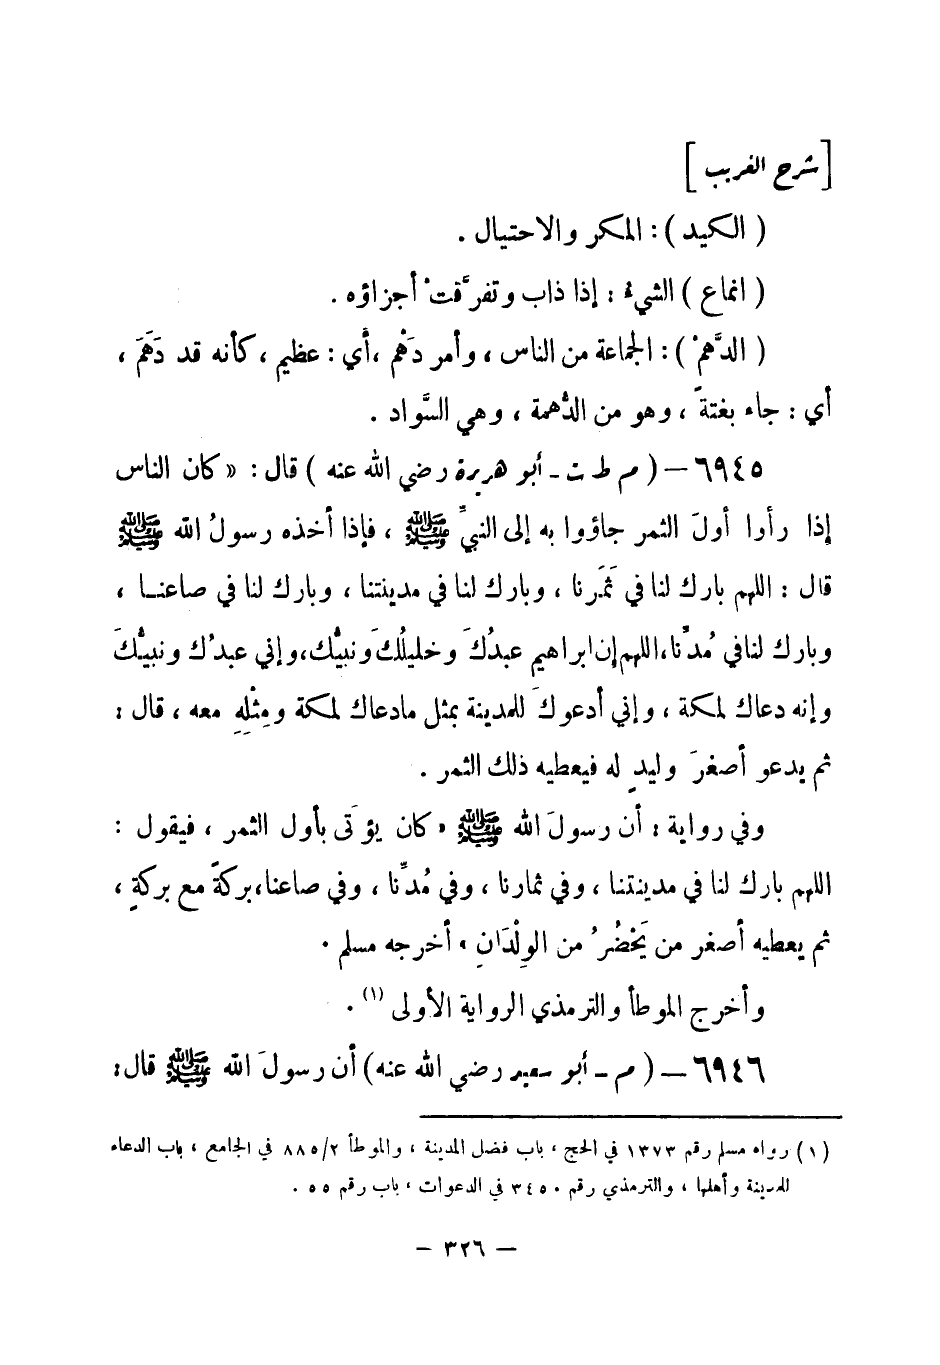 [ شرح الغريب ]
( الكيد ) : المكر والاحتيال .
( انماع ) الشيءُ : إذا ذاب وتفرَّقتْ أجزاؤه .
( الدَّهمْ ) : الجماعة من الناس ، وأمر دَهْم ، أي : عظيم ، كأنه قد دَهَمَ ،
أي : جاء بغتةً ، وهو من الدُّهمة ، وهي السَّواد .
٦٩٤٥ – ( م ط ت - أبو هريرة رضي الله عنه ) قال : « كان الناس
إذا رأوا أولَ الثمر جاؤوا به إلى النبيِّ ﷺ ، فإذا أخذه رسولُ الله ﷺ
قال : اللهم بارك لنا في ثَمَرنا ، وبارك لنا في مدينتنا ، وبارك لنا في صاعنـا ،
وبارك لنا في مُدِّنا، اللهم إن ابراهيم عبدُكَ وخليلُكَ ونبيُّك، وإني عبدُك ونبيُّكَ
وإنه دعاك لمكة ، وإني أدعوكَ للمدينة بمثل مادعاك لمكة ومِثْلِهِ معه ، قال :
ثم يدعو أصغرَ وليدٍ له فيعطيه ذلك الثمر .
وفي رواية : أن رسولَ الله ﷺ « كان يؤتَى بأول الثمر ، فيقول :
اللهم بارك لنا في مدينتنا ، وفي ثمارنا ، وفي مُدِّنا ، وفي صاعنا، بركةً مع بركةٍ ،
ثم يعطيه أصغر من يَحْضُرُ من الوِلْدَانِ » أخرجه مسلم .
وأخرج الموطأ والترمذي الرواية الأولى (١) .
٦٩٤٦ – ( م - أبو سعيد رضي الله عنه ) أن رسولَ الله ﷺ قال :
(١) رواه مسلم رقم ١٣٧٣ في الحج ، باب فضل المدينة ، والموطأ ٨٨٥/٢ في الجامع ، باب الدعاء
للمدينة وأهلها ، والترمذي رقم ٣٤٥٠ في الدعوات ، باب رقم ٥٥ .
– ٣٢٦ –